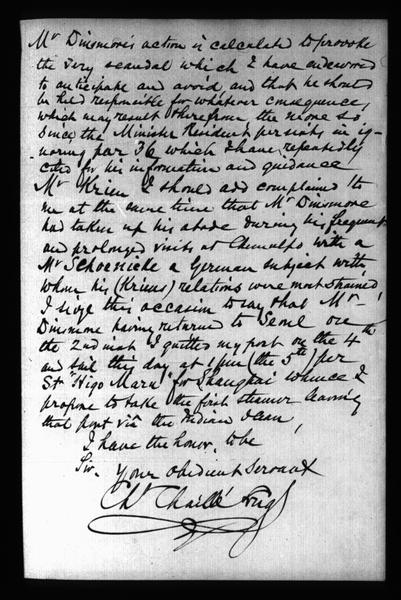 Mr Dinsmore's action is calculated to provoke
the very scandal which I have endeavored
to anticipate and avoid, and that he should
be held responsible for whatever consequence,
which may result therefrom, the more so
since the Minister Resident persists in ig-
noring par 36 which I have repeatedly
cited for his information and guidance
Mr Krien I should add complained to
me at the same time that Mr Dinsmore
had taken up his abode during his frequent
and prolonged visits at Chemulpo with a
Mr Schoenicke a German subject with
whom his (Kriens) relations were most strained
I seize this occasion to say that Mr
Dinsmore having returned to Seoul on
the 2nd inst I quitted my post on the 4th
and sail this day at 1 pm (the 5th) per
St "Higo Maru" for Shanghai whence I
propose to take the first steamer leaving
that port via the Indian Ocean,
I have the honor, to be
Sir.
Your obedient servant
Ch. Chaillé Long